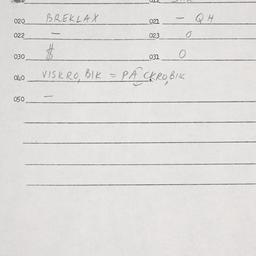 020 BREKLAX 021 - QH
022 - 023 0
030 $ 031 0
040 VISKRO, BIK = PACKROBIK
050 -